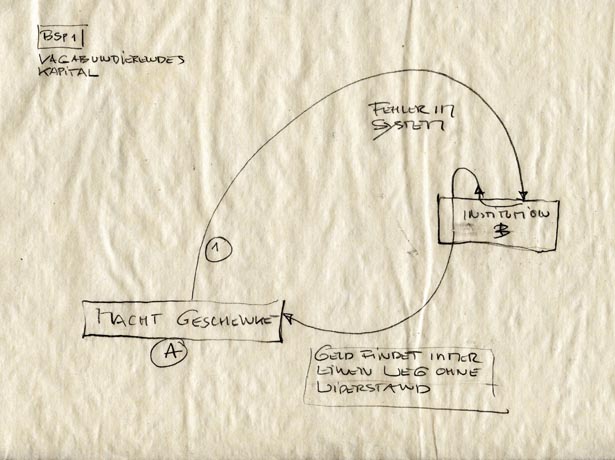 BSP 1
VAGABUNDIERENDES
KAPITAL
FEHLER IM
SYSTEM
INSTITUTION
B
1
MACHT GESCHENKE
A
GELD FINDET IMMER
EINEN WEG OHNE
WIDERSTAND